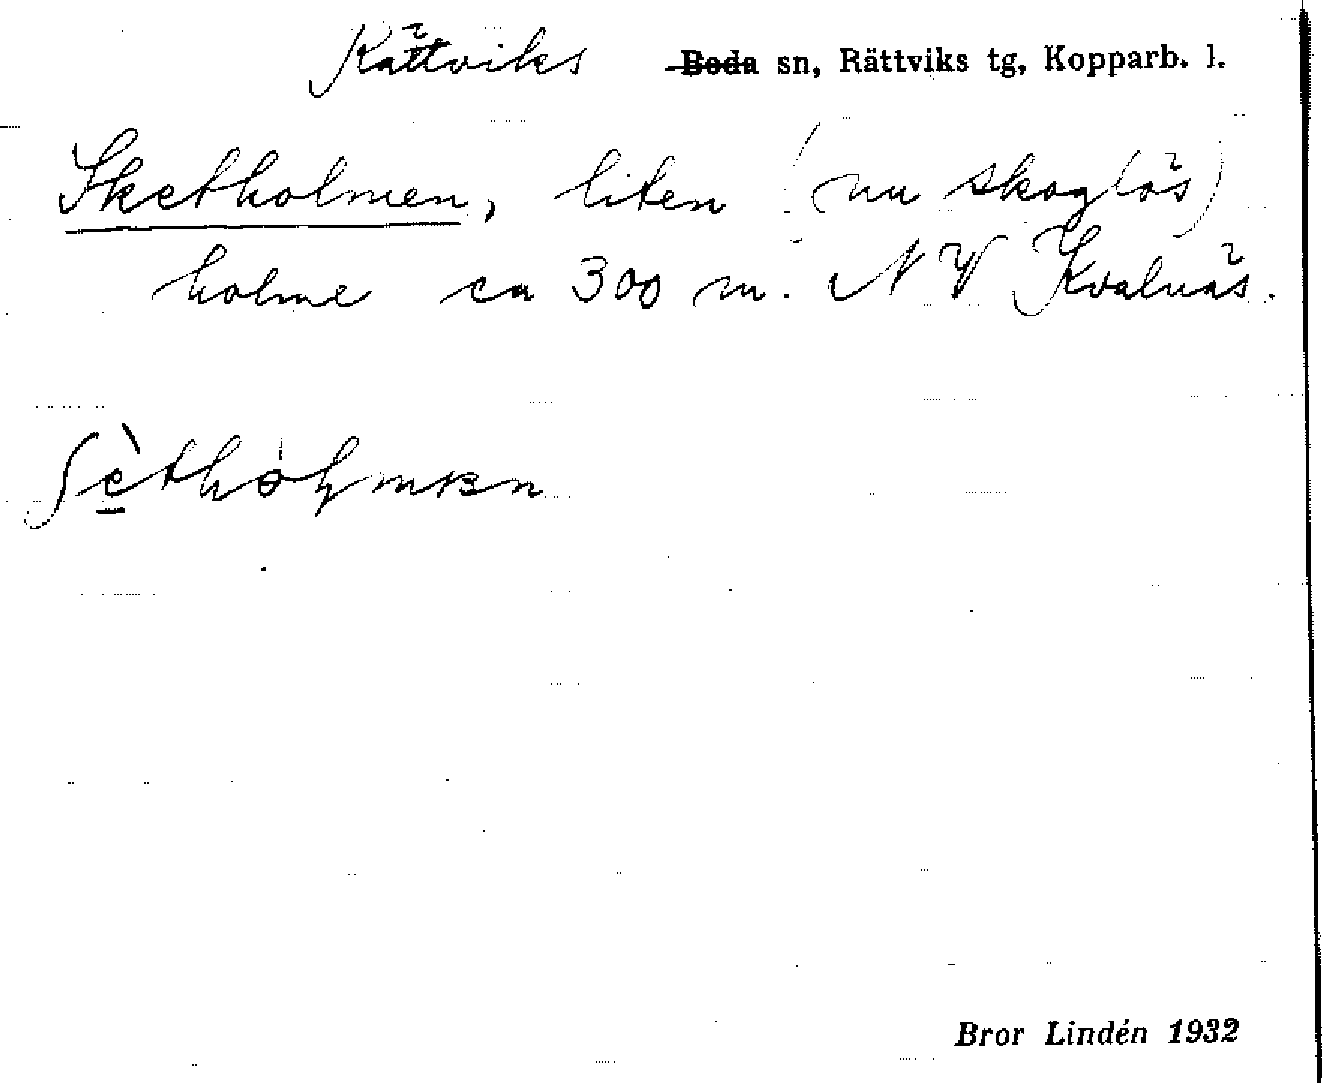 Rättviks ~~Boda~~ sn, Rättviks tg, Kopparb. l.
Sketholmen, liten (nu skoglös)
holme ca 300 m. NV Kvalnäs.
Bror Lindén 1932